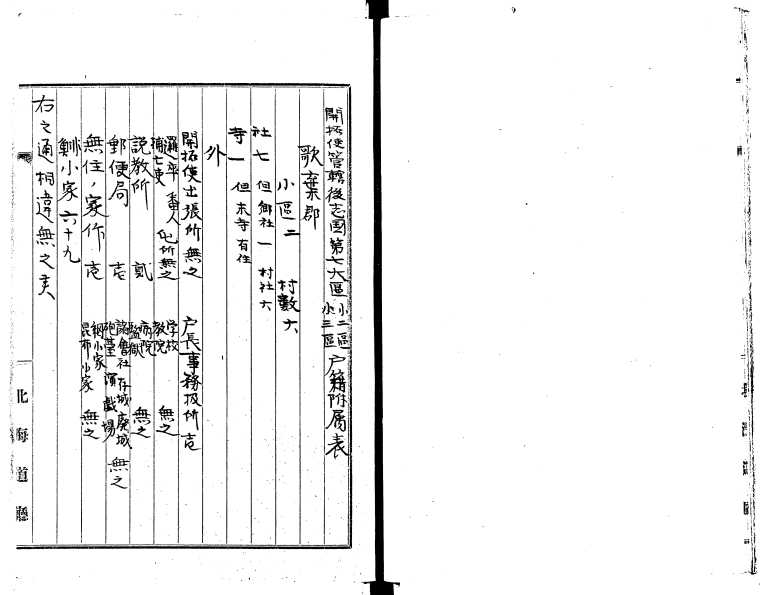 開拓使管轄後志国第七大區 小二區 小三區 戸籍附属表
歌棄郡
小區二 村數六
社七 但郷社一 村社六
寺一 但末寺有住
外
開拓使出張所無之 戸長事務扱所壱
邏卒 番人 屯所無之 学校 教院 無之
捕亡吏
説教所 貳 病院 監獄 無之
郵便局 壱 諭會社 存城 廃城 砲墓 演戯場 無之
無住ノ家作 壱 網小家 昆布小家 無之
鯡小家 六十九
右之通相違無之候
北海道廳